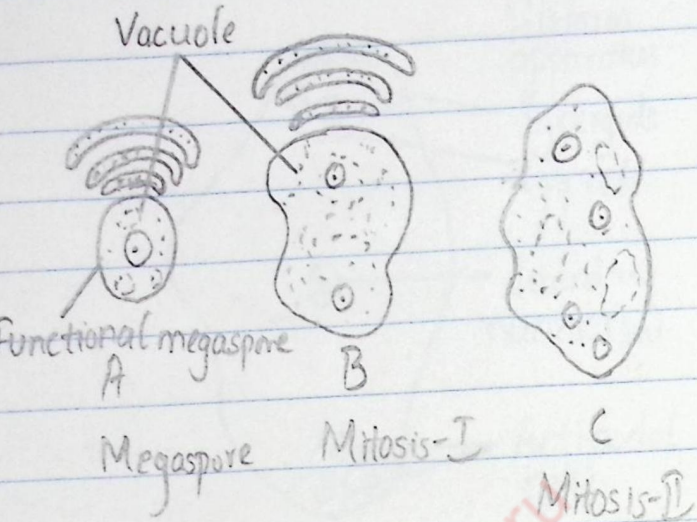 Vacuole
Functional megaspore
A
B
C
Megaspore
Mitosis-I
Mitosis-II